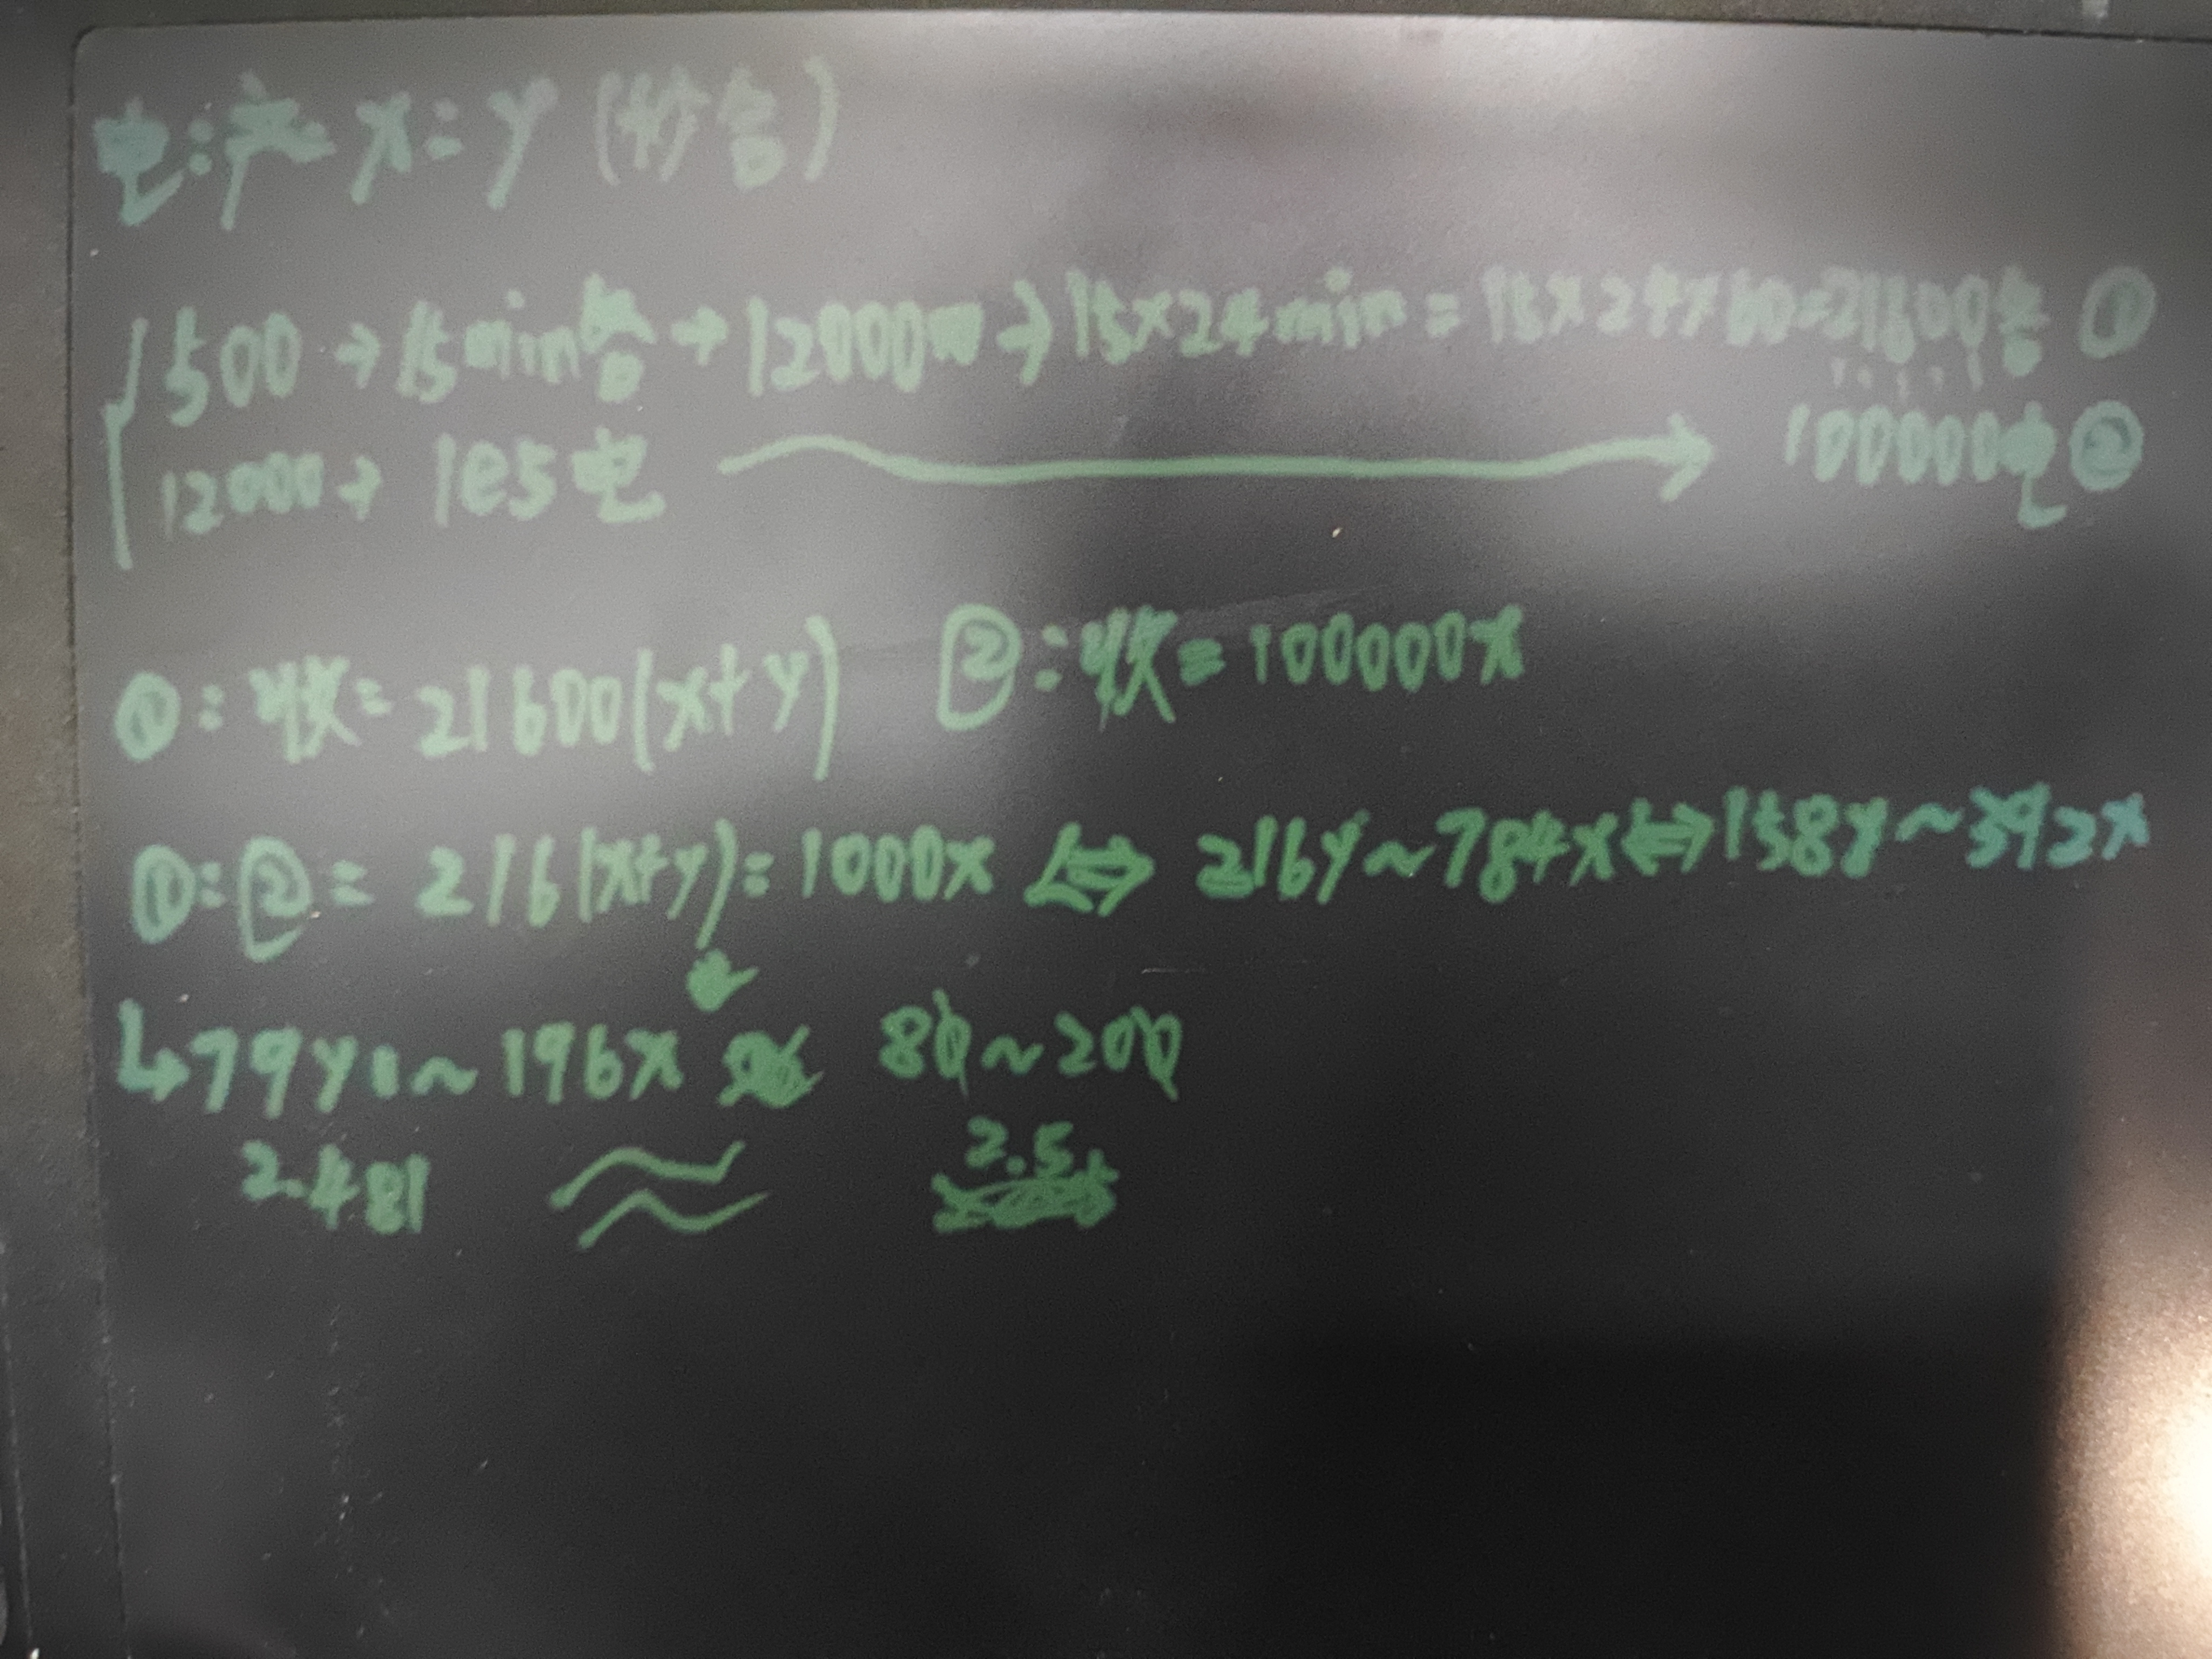 电:产 x:y (秒台)
500→15min台→12000m→15×24min=15×24×60=21600台 ①
12000→1e5电 → 100000电②
①:收=21600(x+y) ②:收=100000x
①:②=216(x+y):1000x⇔216y~784x⇔158y~392x
↳79y:~196x 80~200
2.481 ≈ 2.5